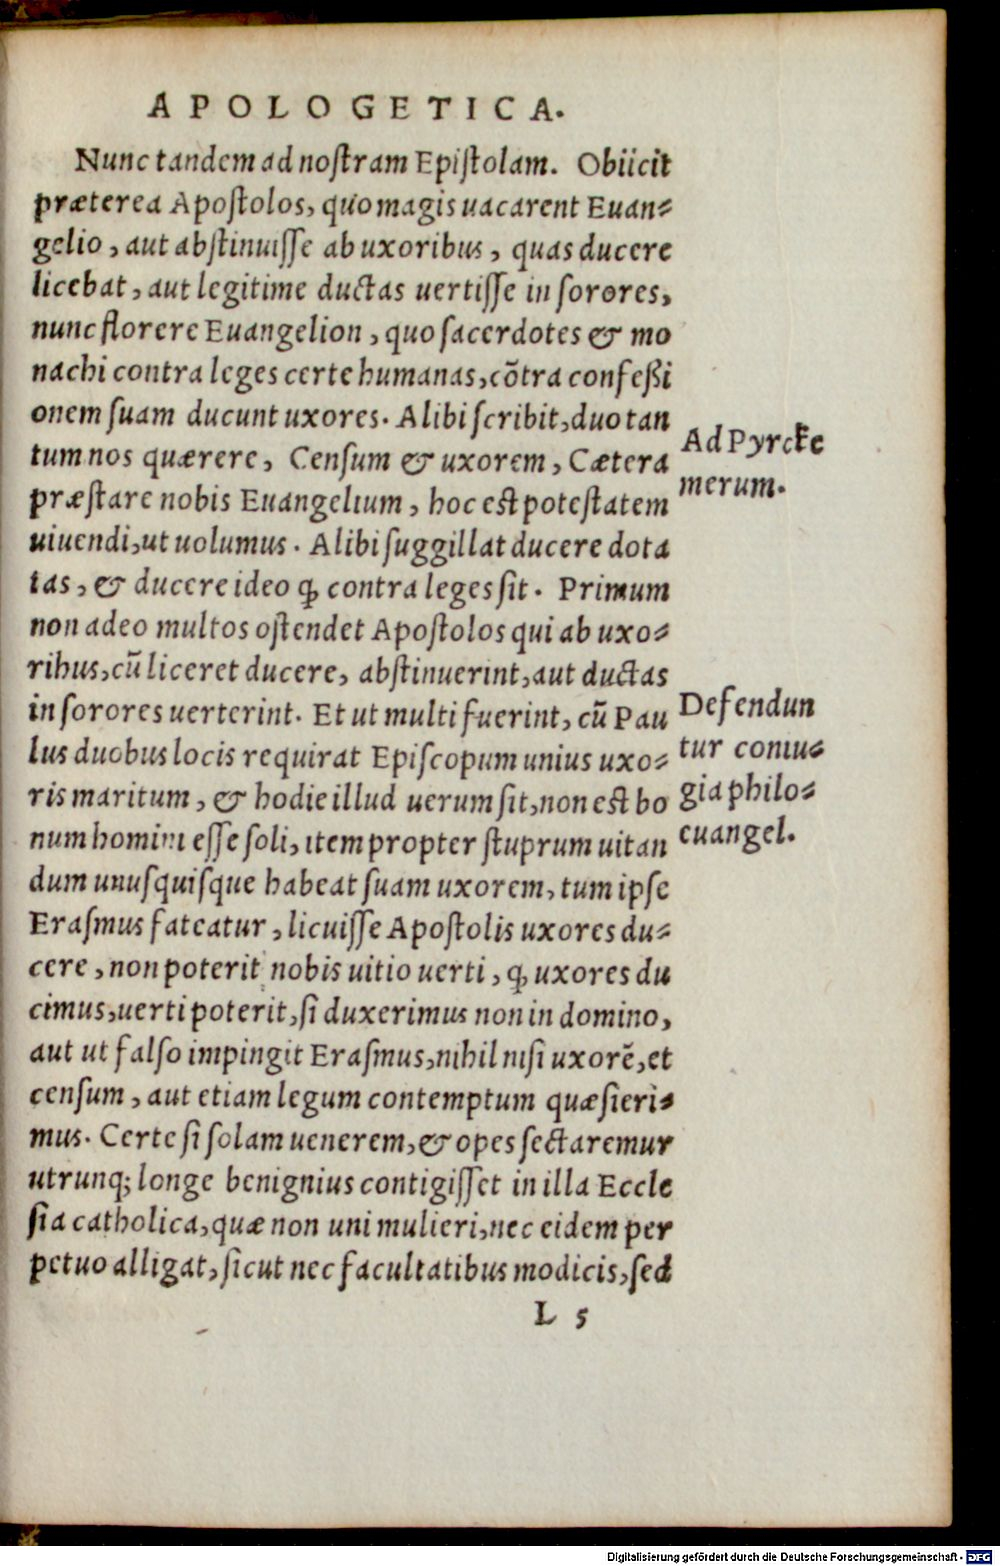 APOLOGETICA.
Nunc tandem ad noſtram Epiſtolam. Obiicit
præterea Apoſtolos, quo magis uacarent Euan-
gelio, aut abſtinuiſſe ab uxoribus, quas ducere
licebat, aut legitime ductas uertiſſe in ſorores,
nunc florere Euangelion, quo ſacerdotes & mo
nachi contra leges certe humanas, cõtra confeßi
onem ſuam ducunt uxores. Alibi ſcribit, duo tan
tum nos quærere, Cenſum & uxorem, Cætera
præſtare nobis Euangelium, hoc eſt poteſtatem
uiuendi, ut uolumus. Alibi ſuggillat ducere dota
tas, & ducere ideo ꝙ contra leges ſit. Primum
non adeo multos oſtendet Apoſtolos qui ab uxo-
ribus, cũ liceret ducere, abſtinuerint, aut ductas
in ſorores uerterint. Et ut multi fuerint, cũ Pau
lus duobus locis requirat Epiſcopum unius uxo-
ris maritum, & hodie illud uerum ſit, non eſt bo
num homini eſſe ſoli, item propter ſtuprum uitan
dum unuſquiſque habeat ſuam uxorem, tum ipſe
Eraſmus fateatur, licuiſſe Apoſtolis uxores du-
cere, non poterit nobis uitio uerti, ꝙ uxores du
cimus, uerti poterit, ſi duxerimus non in domino,
aut ut falſo impingit Eraſmus, nihil niſi uxorẽ, et
cenſum, aut etiam legum contemptum quæſieri-
mus. Certe ſi ſolam uenerem, & opes ſectaremur
utrunq; longe benignius contigiſſet in illa Eccle
ſia catholica, quæ non uni mulieri, nec eidem per
petuo alligat, ſicut nec facultatibus modicis, ſed
L 5
Ad Pyrcke
merum.
Defendun
tur coniu-
gia philo-
euangel.
Digitalisierung gefördert durch die Deutsche Forschungsgemeinschaft - DFG